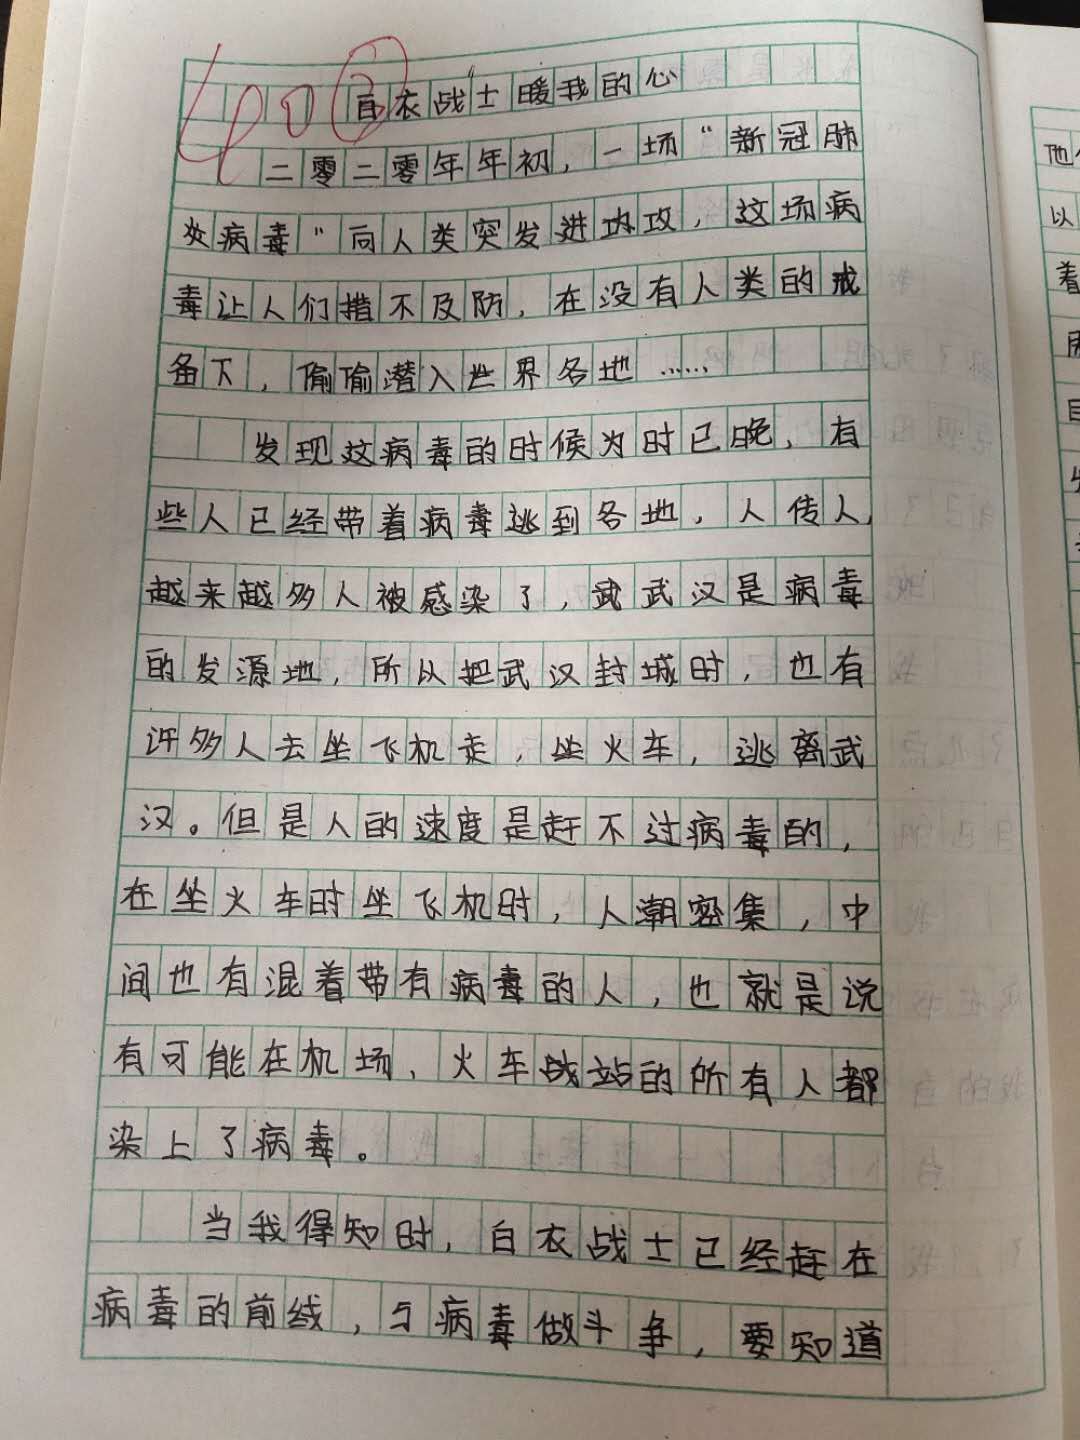 白衣战士暖我的心
二零二零年年初，一场“新冠肺
炎病毒”向人类突发进攻，这场病
毒让人们措不及防，在没有人类的戒
备下，偷偷潜入世界各地……
发现这病毒的时候为时已晚，有
些人已经带着病毒逃到各地，人传人，
越来越多人被感染了，武武汉是病毒
的发源地，所以把武汉封城时，也有
许多人去坐飞机走，坐火车，逃离武
汉。但是人的速度是赶不过病毒的，
在坐火车时坐飞机时，人潮密集，中
间也有混着带有病毒的人，也就是说
有可能在机场、火车战站的所有人都
染上了病毒。
当我得知时，白衣战士已经赶在
病毒的前线，与病毒做斗争，要知道